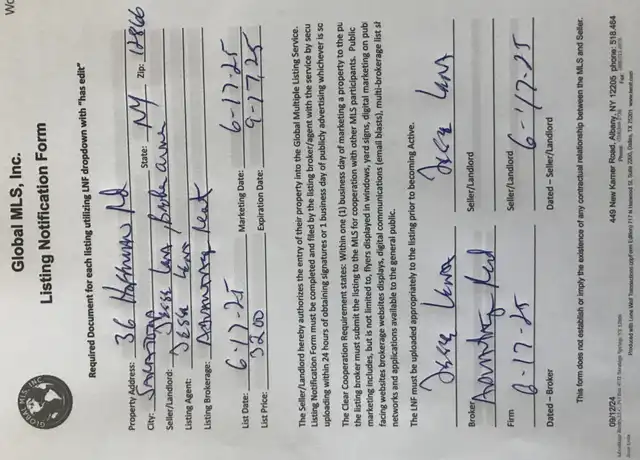 GLOBAL MLS, INC
Global MLS, Inc.
Listing Notification Form
Required Document for each listing utilising LNF dropdown with "has edit"
Property Address: 36 Rd
City: State: NY Zip: 12866
Seller/Landlord: Jesse
Listing Agent: Jesse
Listing Brokerage:
List Date: 6-17-25 Marketing Date: 6-17-25
List Price: 3200 Expiration Date: 9-17-25
The Seller/Landlord hereby authorizes the entry of their property into the Global Multiple Listing Service.
Listing Notification Form must be completed and filed by the listing broker/agent with the service by secu
uploading within 24 hours of obtaining signatures or 1 business day of publicly advertising whichever is so
The Clear Cooperation Requirement states: Within one (1) business day of marketing a property to the pu
the listing broker must submit the listing to the MLS for cooperation with other MLS participants. Public
marketing includes, but is not limited to, flyers displayed in windows, yard signs, digital marketing on pub
facing websites brokerage websites displays, digital communications (email blasts), multi-brokerage list sh
networks and applications available to the general public.
The LNF must be uploaded appropriately to the listing prior to becoming Active.
Broker Seller/Landlord
Firm Seller/Landlord
6-17-25 6-17-25
Dated – Broker Dated – Seller/Landlord
This form does not establish or imply the existence of any contractual relationship between the MLS and Seller.
09/12/24 449 New Karner Road, Albany, NY 12205 phone: 518.464